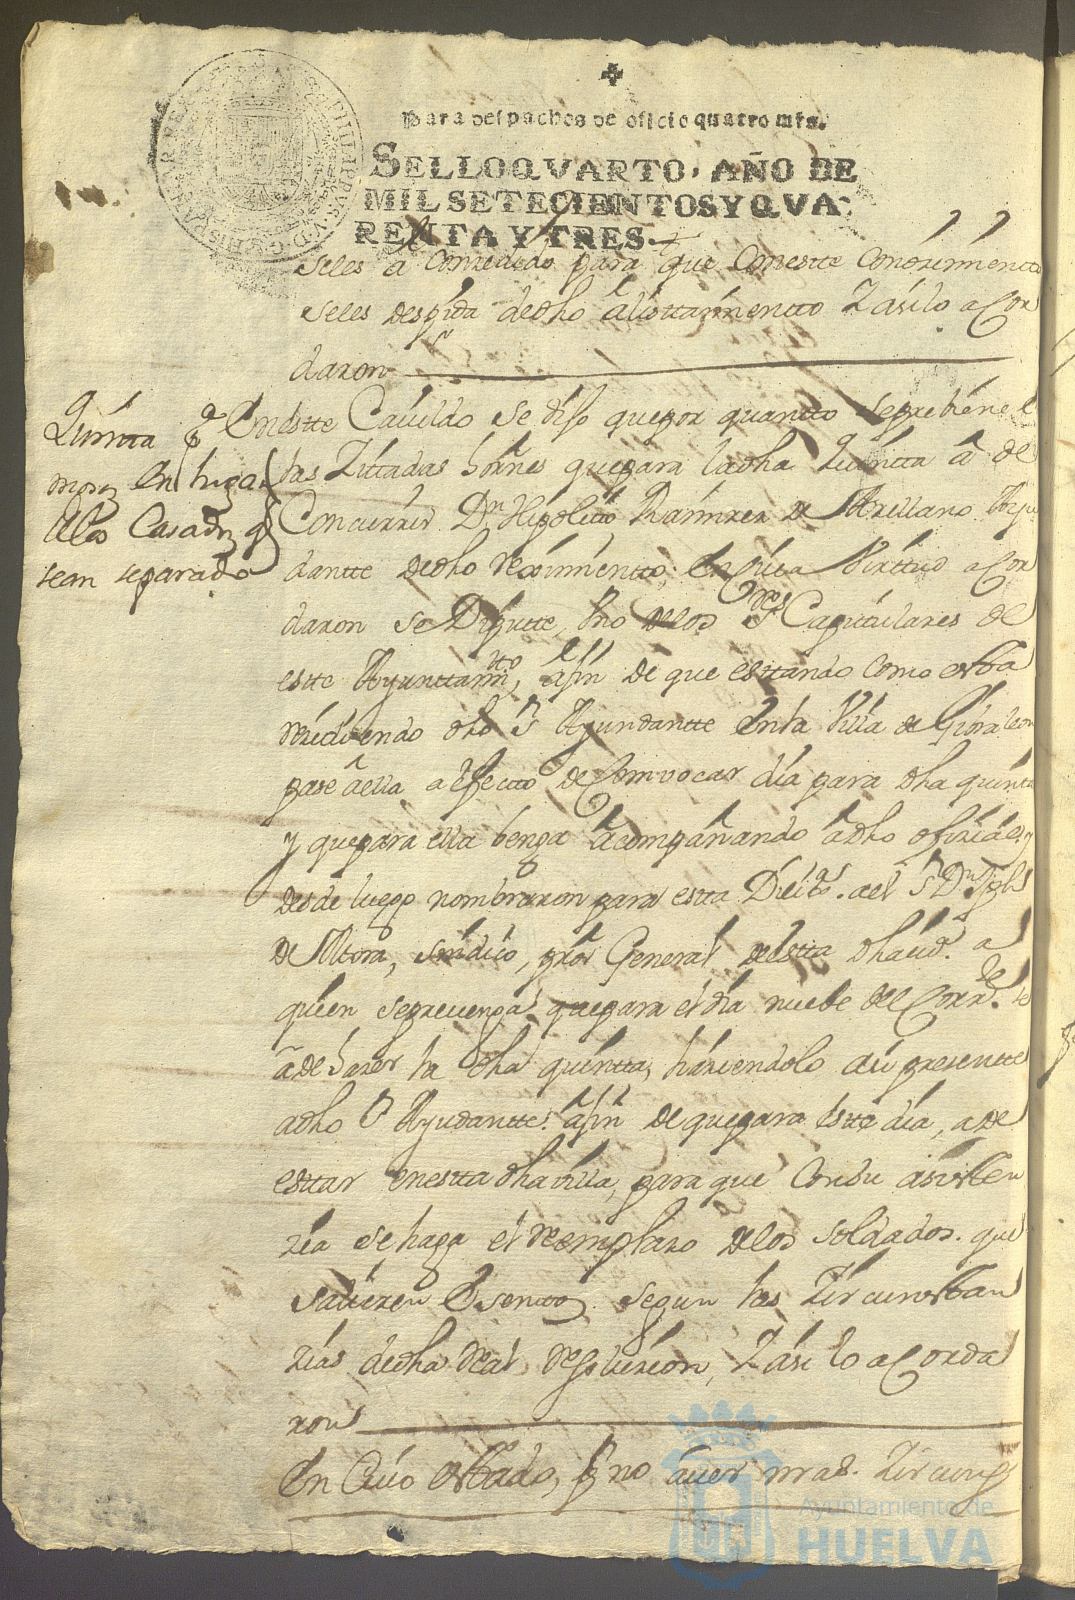 Para despachos de oficio quatro mrs.
SELLO QVARTO, AÑO DE
MIL SETECIENTOS Y QVA-
RENTA Y TRES.
seles a Conzedido para que Conestte Conozimiento
seles despida dedho alisttamientto Y asilo aCor
daron
Quintta pª
mozos En lugar
de los Casados q
sean separado
En estte Cavildo se dijo quepor quantto seprebiene
las Zittadas hornes quepara ladha Quintta a de
Concurrir Dn Hipolitto Ramirez de Arellano Ayu
dantte dedho reximientto, en cuia Virttud aCor
daron se Dipute, Uno delos Sres Capitulares de
estte Ayunttamto, afin de que esttando como estta
residiendo dho Sr Ayundantte En la Villa de Gibraleon
pase aella a efecto de Comvocar dia para dha quintta
y quepara ella benga acompañando adho ofizial y
desde luego nombraron para estta Dilixª. ael Sr Dn
de Mora, sindico, pror General desta dha
quien seprevenga quepara el dia nuebe del Corrte. se
a de hazer la dha quintta, haziendolo asi presentte
adho Sr Ayudantte. afin de quepara Estte dia, a de
esttar enestta dha villa, para que Consu asisten
zia se haga el reemplazo delos soldados. que
salieren Esentos. segun las Zircunsttan
zias dedha Real resoluzion, Y asi lo aCorda
ron
En Cuio esttado, pr no aver mas. Zircunsp
Ayuntamiento de
HUELVA